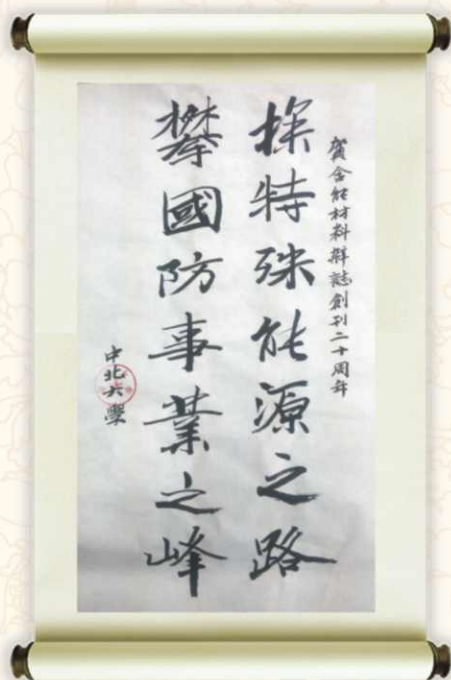 賀含能材料雜誌創刊二十周年
探特殊能源之路
攀國防事業之峰
中北大學